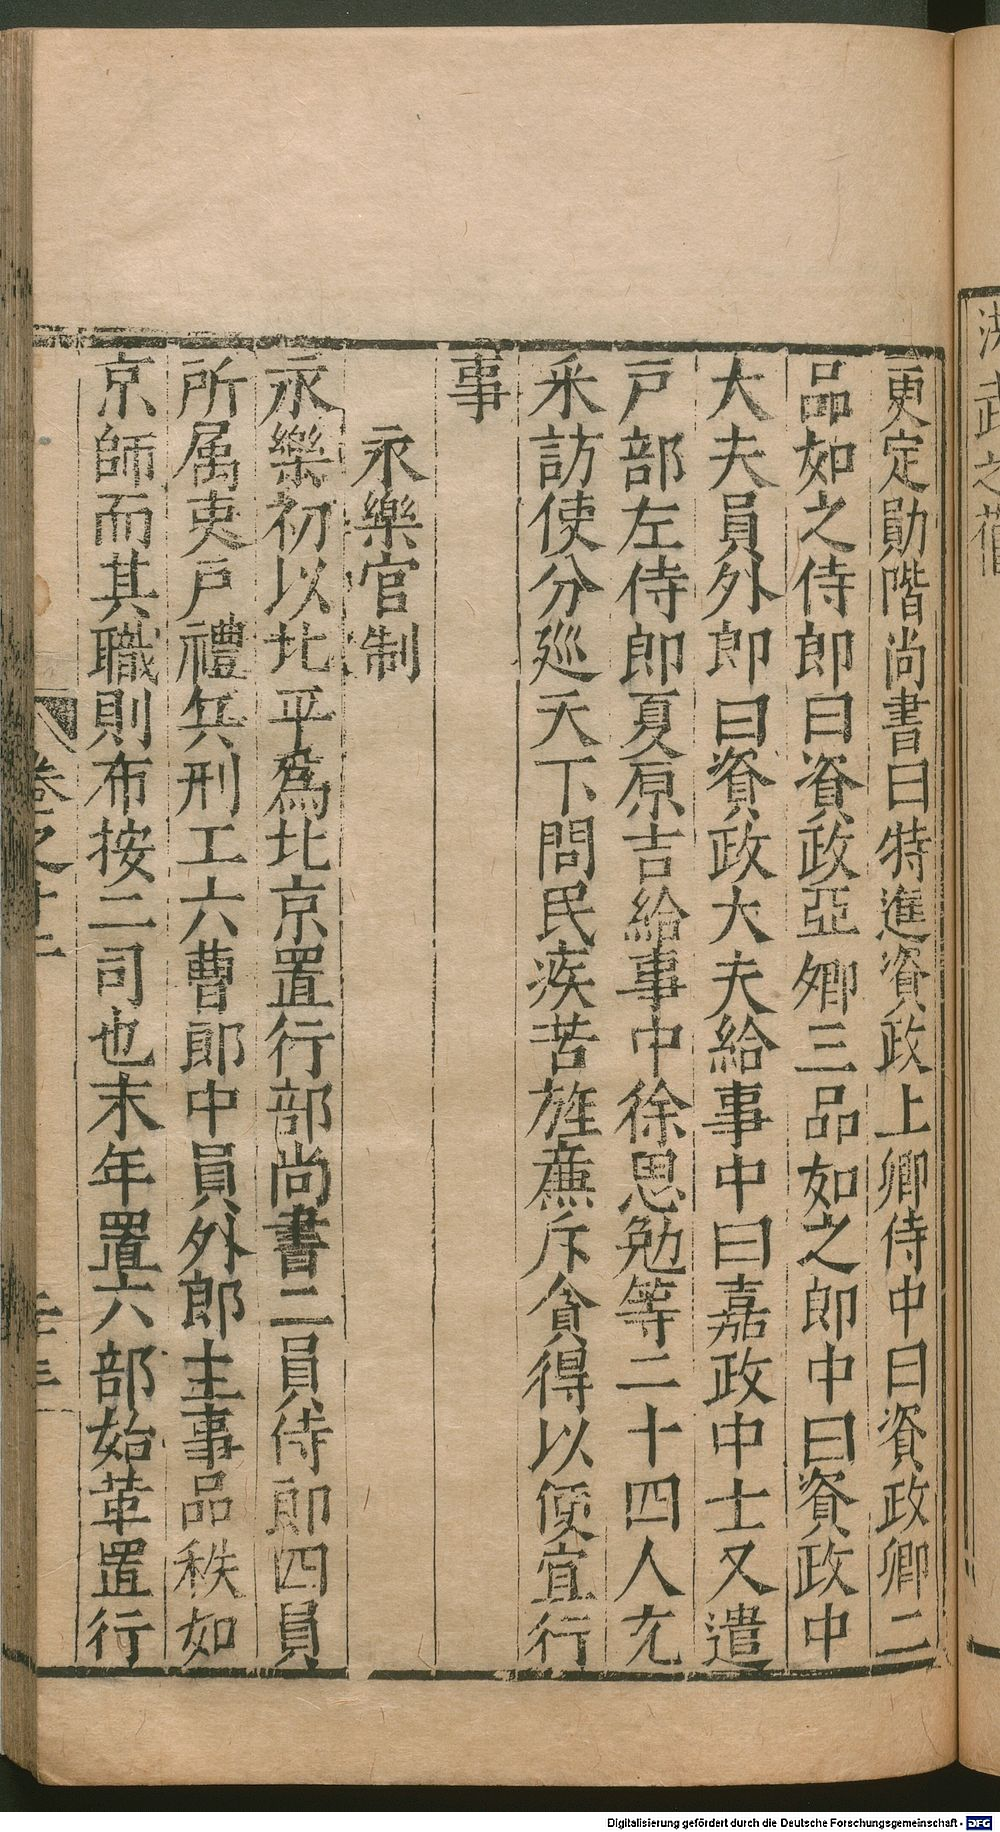 更定勛階尚書曰特進資政上卿侍中曰資政卿二
品如之侍郎曰資政亞卿三品如之郎中曰資政中
大夫員外郎曰資政大夫給事中曰嘉政中士又遣
戸部左侍郎夏原吉給事中徐思勉等二十四人充
采訪使分廵天下問民疾苦旌廉斥貪得以便宜行
事
永樂官制
永樂初以北平爲北京置行部尚書二員侍郎四員
所属吏戸禮兵刑工六曹郎中員外郎主事品秩如
京師而其職則布按二司也末年置六部始革置行
卷之十二
二十三
洪武之
Digitalisierung gefördert durch die Deutsche Forschungsgemeinschaft - DFG